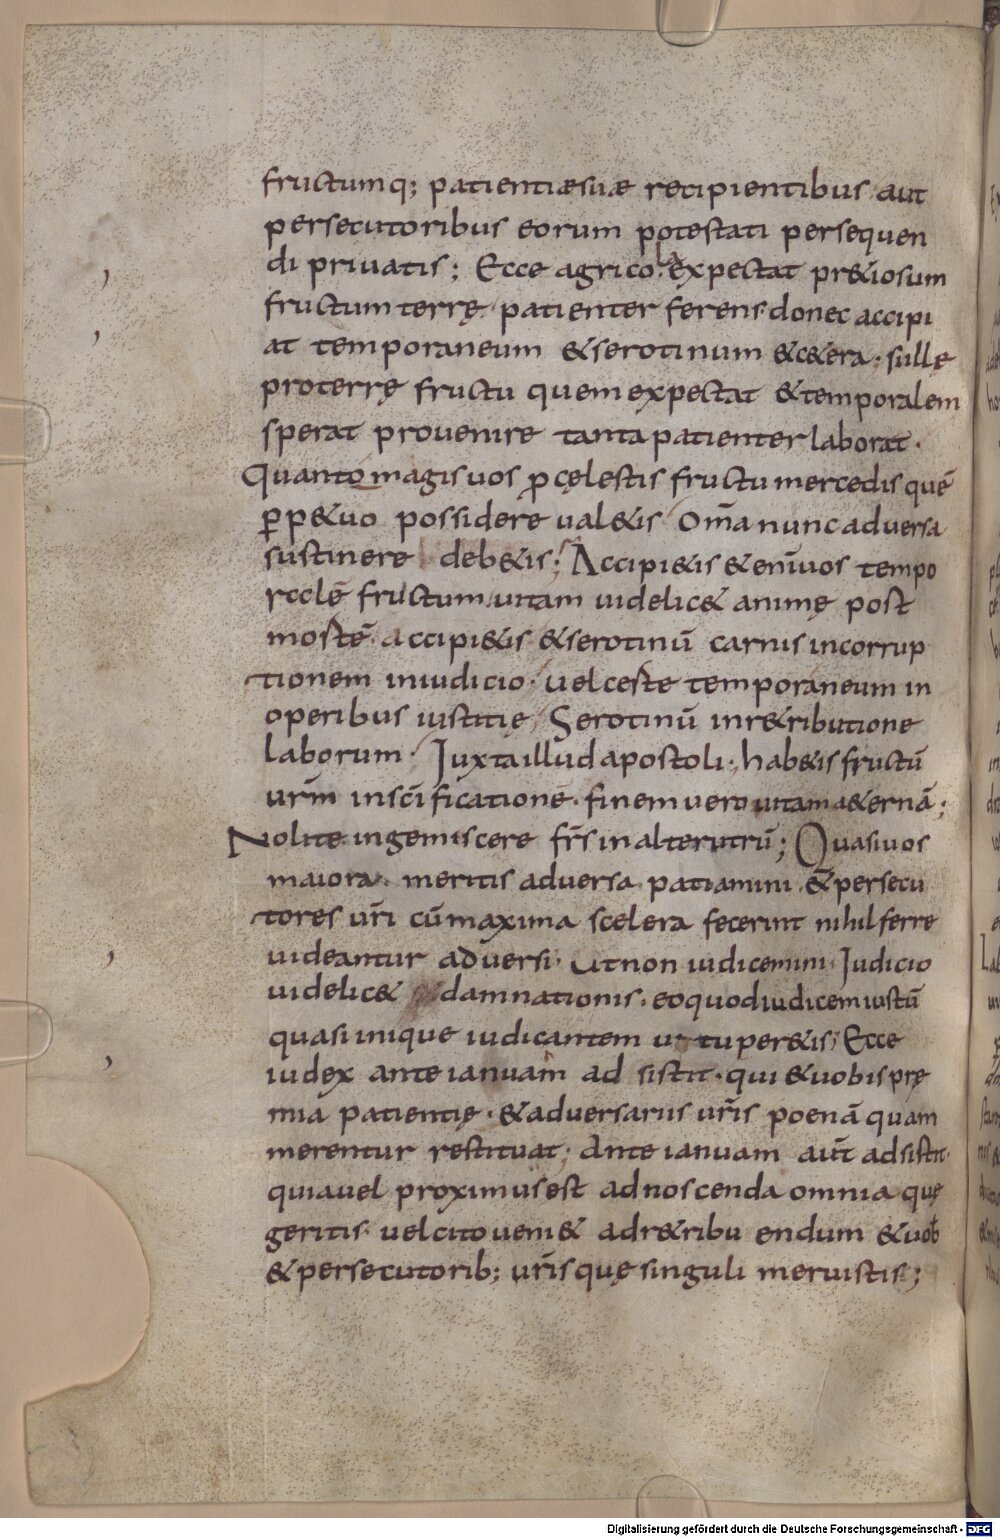 fructumq; patientiæsuæ recipientibus aut
persecutoribus eorum potestati persequen
di priuatis; Ecce agricola expectat pr&iosum
fructum terrę patienter ferens donec accipi
at temporaneum &serotinum &c&era · sille
proterrę fructu quem expectat &temporalem
sperat prouenire tanta patienter laborat ·
Quanto magis uos p cęlestis fructu mercedis quē
pp&uo possidere ual&is Om̄a nunc aduersa
sustinere deb&is; Accipi&is &enī uos tempo
fructum uitam uidelic& animę post
accipi&is &serotinū carnis incorrup
tionem iniudicio · uelceste temporaneum in
operibus iustitię Serotinū inr&ributione
laborum · Juxta illud apostoli · hab&is fructū
urm̄ insc̄ificatione · finem uero uitam a&ernā;
Nolite ingemiscere fr̄s in alterutrū; Quasi uos
maiora meritis aduersa patiamini &persecu
tores ur̄i cū maxima scelera fecerint nihil ferre
uideantur aduersi · Ut non iudicemini · Judicio
uidelic& damnationis · eoquod iudicem iustū
quasi inique iudicantem uituper&is; Ecce
iudex ante ianuam ad sistit · qui &uobis prę
mia patientię · &aduersariis ur̄is poenā quam
merentur restituat; Ante ianuam aut̄ adsistit ·
quia uel proximus est adnoscenda omnia quę
geritis uel cito ueni& adr&ribu endum &uob̄
&persecutorib; ur̄is quę singuli meruistis;
Digitalisierung gefördert durch die Deutsche Forschungsgemeinschaft - DFG